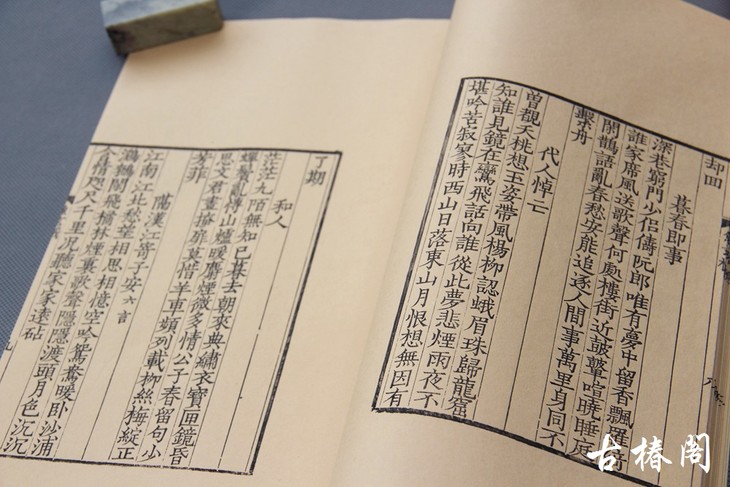 却回
暮春即事
深巷窮門少侶儔阮郎唯有夢中留香飄羅綺
誰家席風送歌聲何處樓街近鼓鼙喧曉睡庭
閑鵲語亂春愁安能追逐人間事萬里身同不
繫舟
代人悼亡
曾覩夭桃想玉姿帶風楊柳認峨眉珠歸龍窟
知誰見鏡在鸞飛話向誰從此夢悲煙雨夜不
堪吟苦寂寥時西山日落東山月恨想無因有
了期
和人
茫茫九陌無知己暮去朝來典繡衣寶匣鏡昏
蟬鬢亂博山爐暖麝煙微多情公子春留句少
思文君晝掩扉莫惜羊車頻列載柳絲梅綻正
芳菲
隔漢江寄子安六言
江南江北愁望相思相憶空吟鴛鴦暖卧沙浦
鸂鶒閑飛橘林煙裏歌聲隱隱渡頭月色沉沉
含情咫尺千里況聽家家遠砧
古椿閣